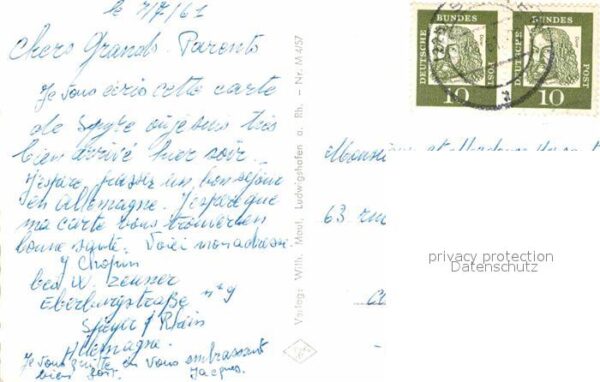 le 7/7/61
Chers Grands-Parents
Je vous écris cette carte
de Speyer où je suis très
bien arrivé hier soir.
J'espère passer un bon séjour
en Allemagne. J'espère que
ma carte vous trouvera en
bonne santé. Voici mon adresse.
J Chopin
bei W. Zeuner
Eberburgstraße n° 9
Speyer / Rhein
Allemagne.
Je vous quitte en vous embrassant
bien fort. Jacques.
Verlag: Wilh. Maul, Ludwigshafen a. Rh. - Nr. M 4/57
DEUTSCHE BUNDES POST
10
DEUTSCHE BUNDES POST
10
Monsieur et Madame
63 rue
privacy protection
Datenschutz